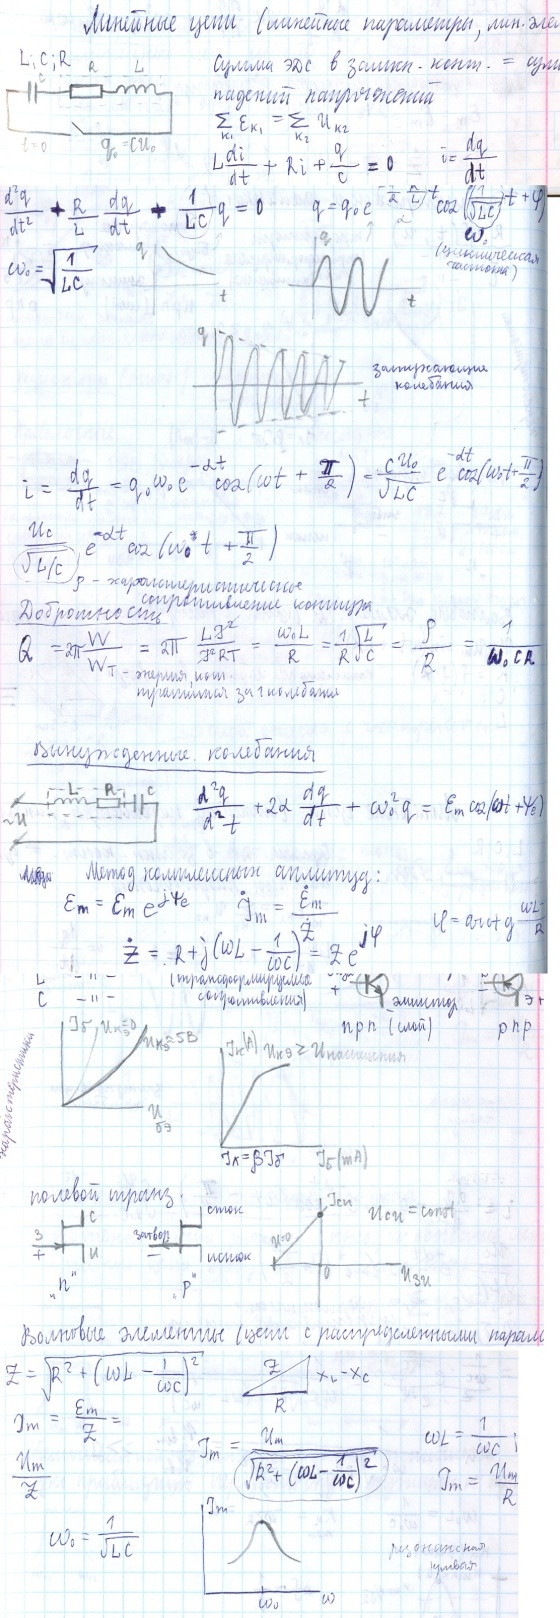 Линейные цепи (линейные параметры, лин. эле
L, C, R
C R L
t=0 q₀=CU₀
Сумма ЭДС в замкн. конт. = сум
падений напряжений
∑ₖ₁ Ɛₖ₁ = ∑ₖ₂ Uₖ₂
L di/dt + Ri + q/C = 0 i = dq/dt
d²q/dt² + R/L dq/dt + 1/LC q = 0
ω₀ = √(1/LC)
ω₀
(циклическая
частота)
q t
q t
q t
затухающие
колебания
i = dq/dt = q₀ω₀e^(-αt) cos(ωt + π/2) = CU₀/√LC e^(-αt) cos(ω₀t + π/2)
Uc/√(L/C) e^(-αt) cos(ω₀t + π/2)
ρ - характеристическое
сопротивление контура
Добротность
Q = 2π W/Wт = 2π LI²/I²RT = ω₀L/R = 1/R √(L/C) = ρ/R = 1/ω₀CR
- энергия, кот
тратится за 1 колебание
Вынужденные колебания
~U L R C
d²q/d²t + 2α dq/dt + ω₀²q = Ɛm cos(ωt + Ψe)
Метод комплексных амплитуд:
Ɛm = Ɛm e^(jΨe) İm = Ɛ̇m/Ż
φ = arctg ωL-/R
Ż = R + j(ωL - 1/ωC) = Z e^(jφ)
L -"- (трансформируемые
C -"- сопротивления)
+ эмиттер
npn (слой) pnp
характеристики
Iб Uкэ=0
Uкэ=5В
Uбэ
Iк(А) Uкэ ≥ Uнасыщения
Iк=βIб Iб(mA)
полевой транз.
З + С И
"n"
затвор - сток исток
"p"
Iси Uси = const
U=0
0 Uзи
Волновые элементы (цепи с распределенными парам
Z = √(R² + (ωL - 1/ωC)²)
Z R XL-XC
Im = Ɛm/Z =
Um/Z
Im = Um/√(R² + (ωL - 1/ωC)²)
ωL = 1/ωC;
Im = Um/R
ω₀ = 1/√LC
Im
ω₀ ω
резонансная
кривая